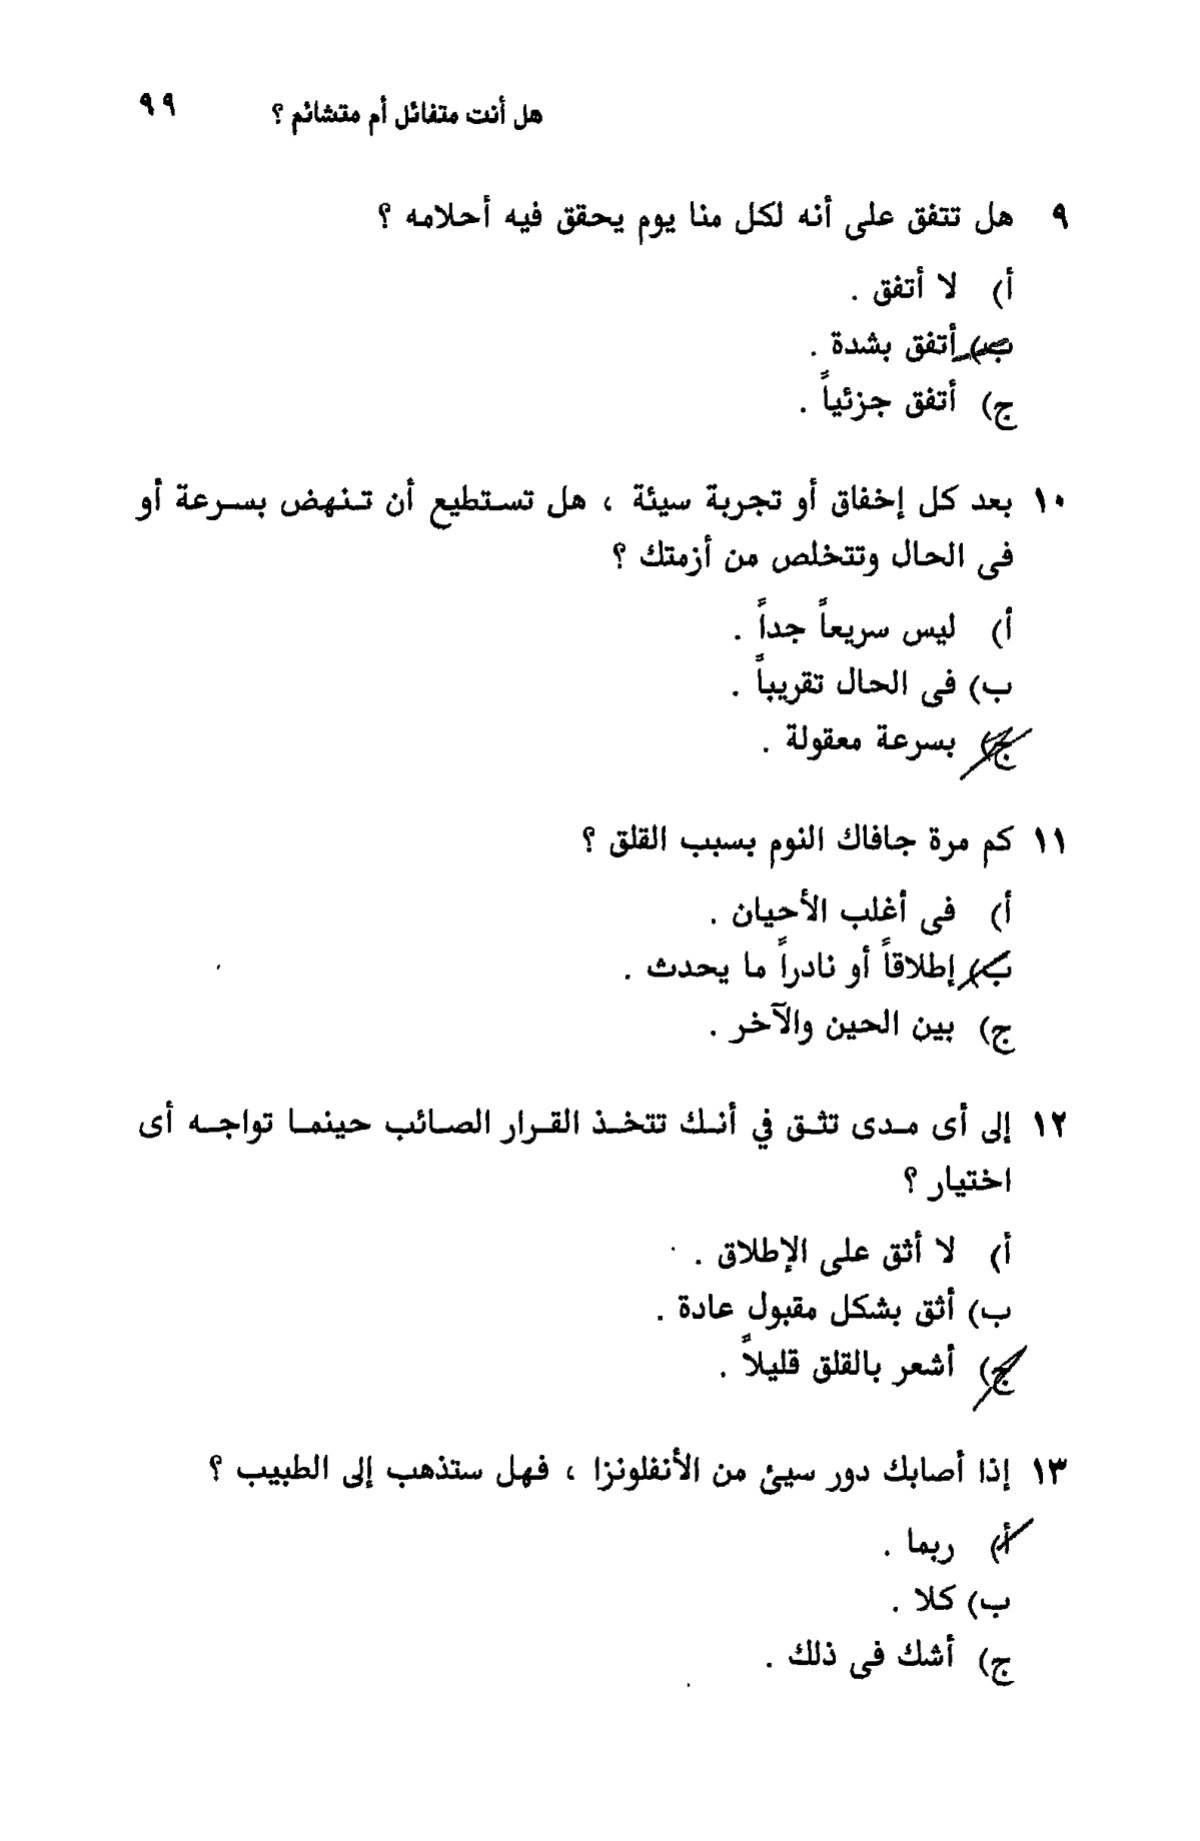 هل أنت متفائل أم متشائم ؟ ٩٩
٩ هل تتفق على أنه لكل منا يوم يحقق فيه أحلامه ؟
أ) لا أتفق .
ب) أتفق بشدة .
ج) أتفق جزئياً .
١٠ بعد كل إخفاق أو تجربة سيئة ، هل تستطيع أن تنهض بسرعة أو
فى الحال وتتخلص من أزمتك ؟
أ) ليس سريعاً جداً .
ب) فى الحال تقريباً .
ج) بسرعة معقولة .
١١ كم مرة جافاك النوم بسبب القلق ؟
أ) فى أغلب الأحيان .
ب) إطلاقاً أو نادراً ما يحدث .
ج) بين الحين والآخر .
١٢ إلى أى مدى تثق في أنك تتخذ القرار الصائب حينما تواجه أى
اختيار ؟
أ) لا أثق على الإطلاق .
ب) أثق بشكل مقبول عادة .
ج) أشعر بالقلق قليلاً .
١٣ إذا أصابك دور سيئ من الأنفلونزا ، فهل ستذهب إلى الطبيب ؟
أ) ربما .
ب) كلا .
ج) أشك فى ذلك .